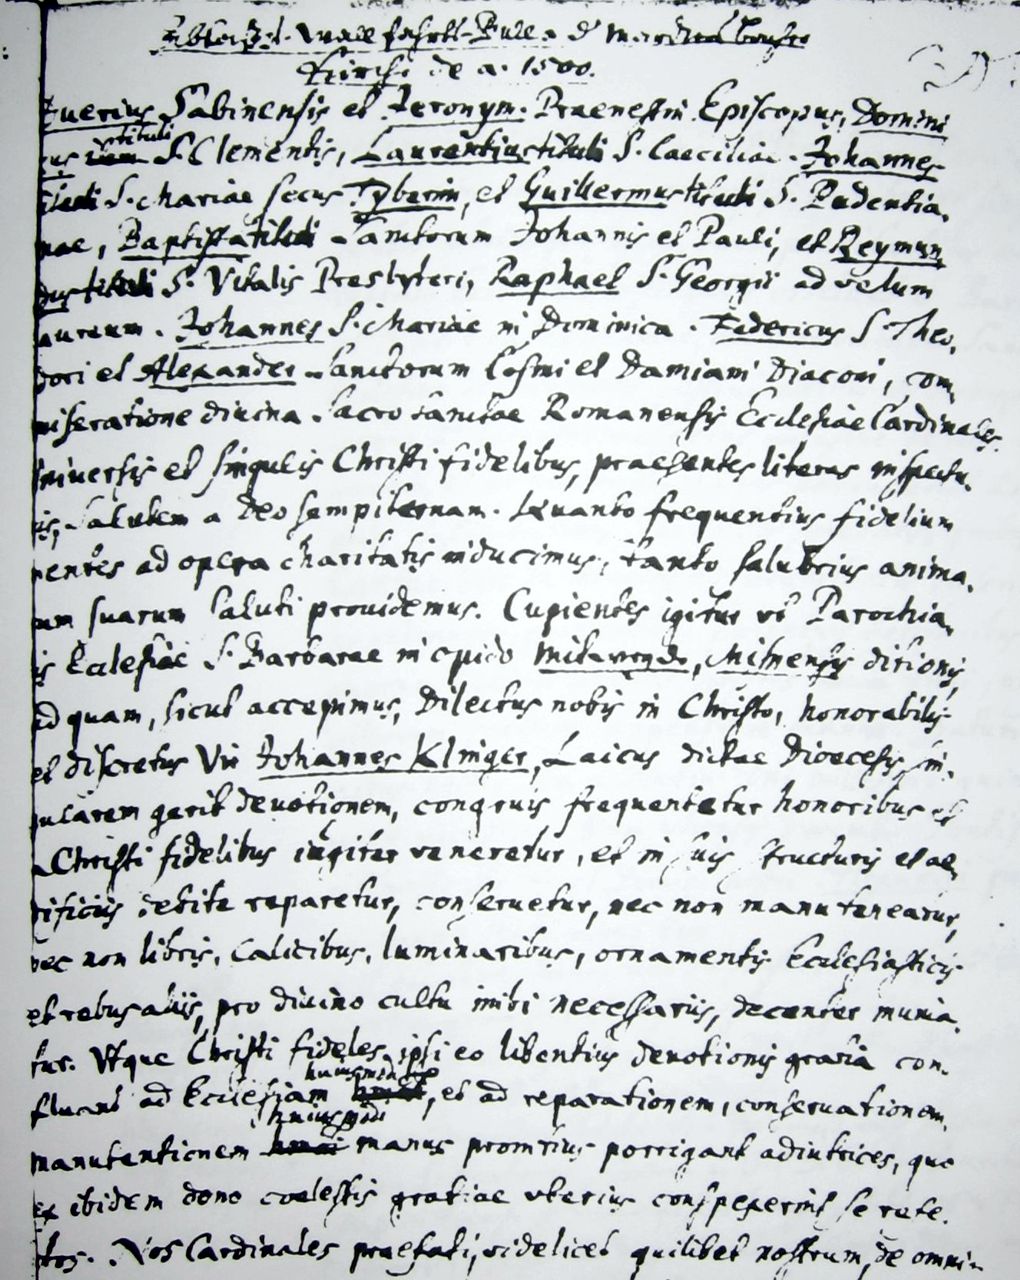 Ablass- Wallfahrts-Bulle d
Kirche de a. 1500.
uerius Sabinensis et Jeronym. Praenestin Episcopus, Domini
cus tituli S. Clementis, Laurentius tituli S. Caeciliae. Johannes
tituli S. Mariae secus Tyberim, et Guillermus tituli S. Pudentia.
nae, Baptista tituli Sanctorum Johannis et Pauli, et Reymun
dus tituli S. Vitalis Presbyteri, Raphael S. Georgii ad velum
aureum. Johannes S. Mariae in Dominica. Federicus S. Theo.
dori et Alexander Sanctorum Cosmi et Damiani Diaconi, com
miseratione divina Sacro sanctae Romanensis Ecclesiae Cardinales.
universis et singulis Christi fidelibus, praesentes literas inspectu.
is, Salutem a deo sempiternam. Quanto frequentius fidelium
mentes ad opera charitatis inducimus, tanto salubrius anima.
rum suarum saluti providemus. Cupientes igitur ut Parochia.
is Ecclesiae S. Barbarae in opido Mitisnensis ditionis,
ad quam, sicut accepimus, Dilectus nobis in Christo, honorabilis
et discretus Vir Johannes Klinger, Laicus dictae Dioecesis, sin.
gularem gerit devotionem, congruis frequentetur honoribus et
a Christi fidelibus iugiter veneretur, et in suis structuris et ae
dificiis debite reparetur, conservetur, nec non manuteneatur,
nec non libris, calicibus, luminaribus, ornamentis Ecclesiasticis
et rebus aliis, pro divino cultu inibi necessariis, decenter munia.
tur. Utque Christi fideles ipsi eo libentius devotionis gratia con.
fluant ad Ecclesiam huiusmodi, et ad reparationem, conservationem,
manutentionem huiusmodi manus promtius porrigant adiutrices, quo
ex ibidem dono coelestis gratiae uberius conspexerint se refe.
ctos. Nos Cardinales praefati, videlicet quilibet nostrum, de omni-